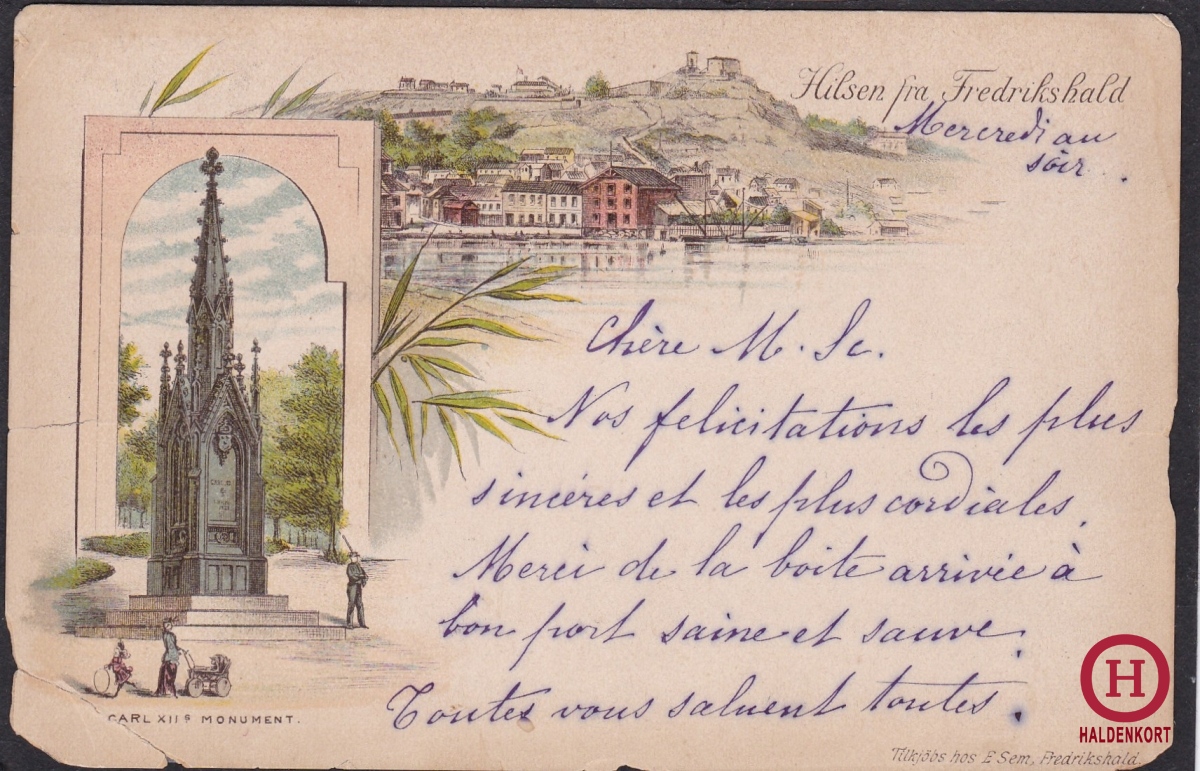 Hilsen fra Fredrikshald
Mercredi au
soir.
Chère M. Sc.
Nos felicitations les plus
sincères et les plus cordiales.
Merci de la boite arrivée à
bon port saine et sauve.
Toutes vous saluent toutes.
CARL XIIs MONUMENT.
H
HALDENKORT
Tilkjöbs hos E Sem, Fredrikshald.